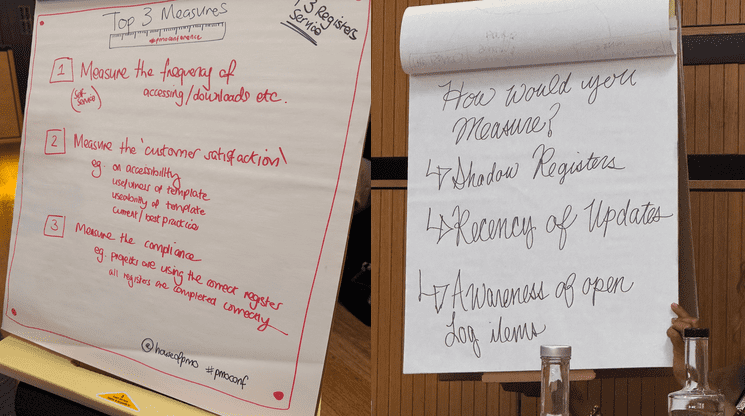 Top 3 Measures
#pmoconference
Registers
Service
1 Measure the frequency of
accessing/downloads etc.
(Self
Service)
2 Measure the 'customer satisfaction'
eg. on accessibility
usefulness of template
useability of template
current/best practices
3 Measure the compliance
eg. projects are using the correct register
all registers are completed correctly
@houseofpmo #pmoconf
How would you
Measure?
↳ Shadow Registers
↳ Recency of Updates
↳ Awareness of open
Log items